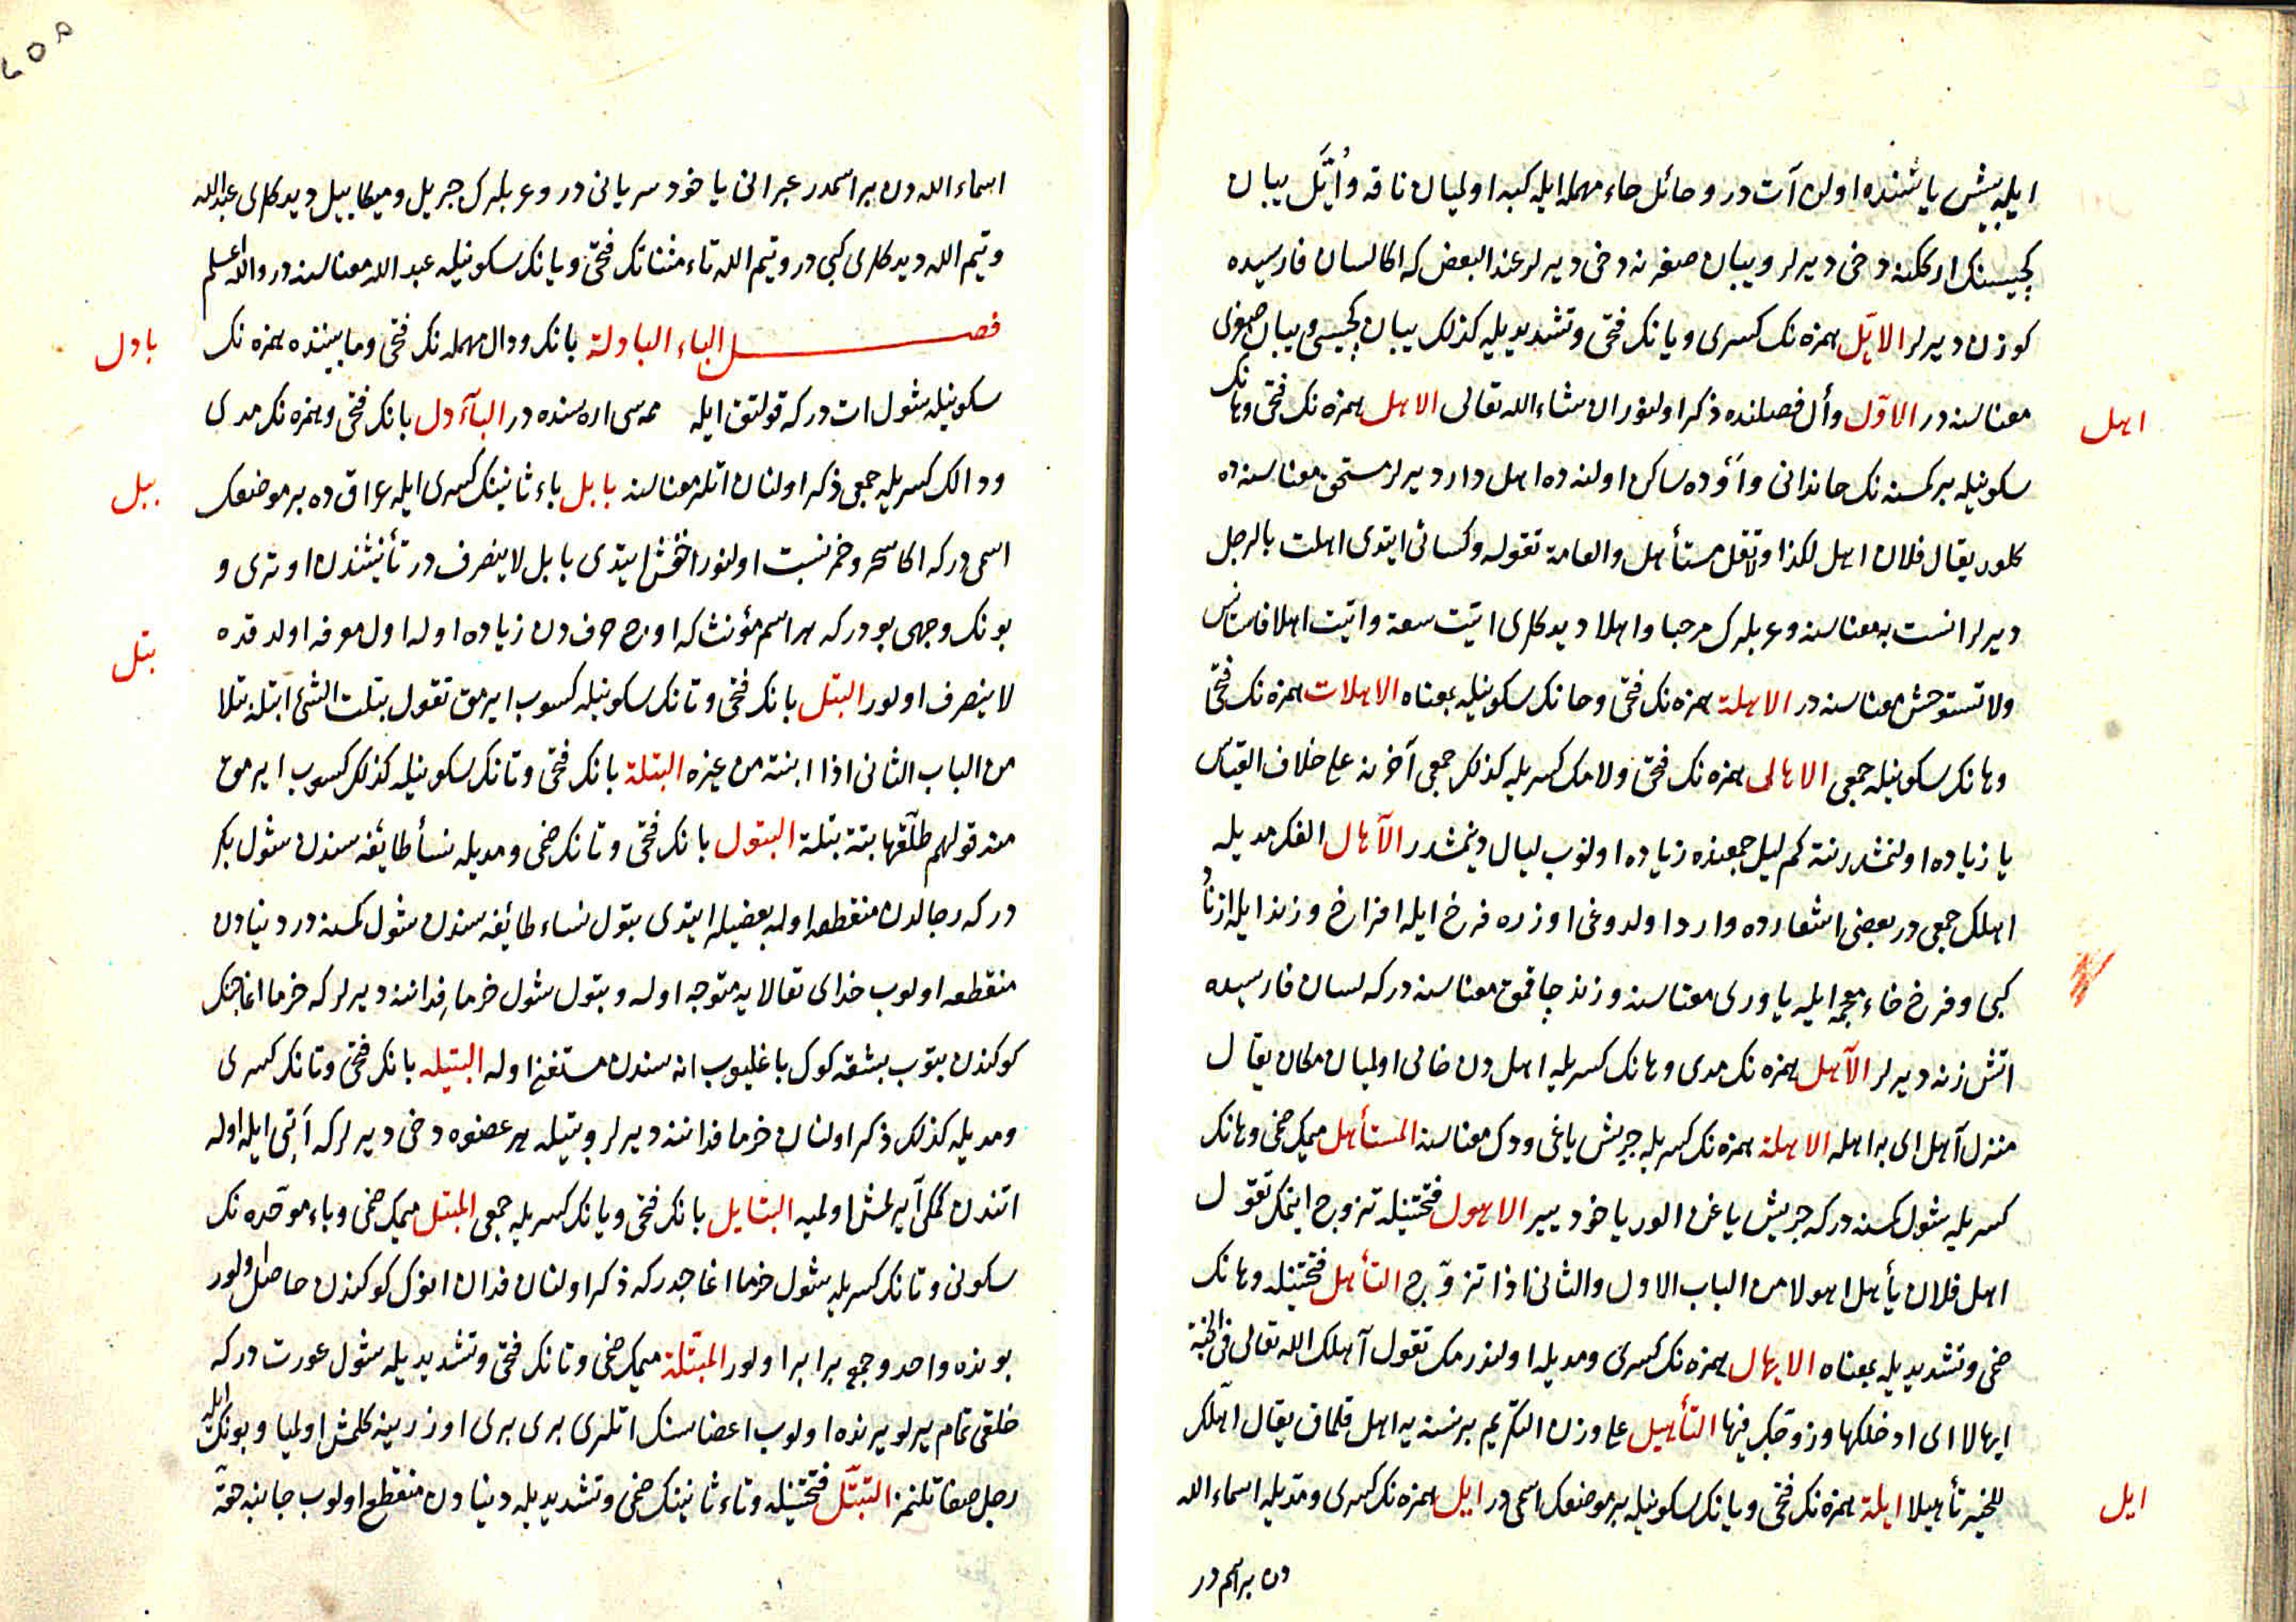 ايله بيش ياشنده اولن آت در و حائل حاء مهمله ايله كبه اولميان ناقه و اُيَّل يبان
كچيسنك ارككنه دخى ديرلر و يبان صغرنه دخى ديرلر عند البعض كه اكا لسان فارسيده
كوزن ديرلر الايّل همزه نك كسرى و يانك فتحى و تشديديله كذلك يبان كچيسى و يبان صغرى
معناسنه در الاوّل وأل فصلنده ذكر اولنور ان شاء الله تعالى الاهل همزه نك فتحى و هانك
اهل
سكونيله بر كمسنه نك خاندانى و أوده ساكن اولنه ده اهل دار ديرلر مستحق معناسنه ده
كلور يقال فلان اهل لكذا و لا تقل مستأهل والعامة تقوله و كسائى ايتدى اهلت بالرجل
ديرلر انست به معناسنه و عربلرك مرحبا و اهلا ديدكلرى اتيت سعة و اتيت اهلا فاستأنس
ولا تستوحش معناسنه در الاهلة همزه نك فتحى و هانك سكونيله بمعناه الاهلات همزه نك فتحى
و هانك سكونيله جمعى الاهالى همزه نك فتحى و لامك كسريله كذلك جمعى آخرنه على خلاف القياس
يا زياده اولنمشدر نته كم ليل جمعنده زياده اولنوب ليال دينمشدر الآهال الفك مديله
اهلك جمعى در بعضى اشعارده وارد اولدوغى اوزره فرخ ايله افراخ و زند ايله ازناد
كبى و فرخ خاء معجمه ايله ياورى معناسنه و زند چاقمق معناسنه در كه لسان فارسيده
اتش زنه ديرلر الآهل همزه نك مدى و هانك كسريله اهل دن خالى اولميان مكان يقال
منزل آهل اى به اهله الاهلة همزه نك كسريله جريش ياغى و ودك معناسنه المستأهل ميمك ضمى و هانك
كسريله شول كمسنه در كه جريش ياغن الور ياخود يير الاهول فتحتينله تزوج ايتمك تقول
اهل فلان يأهل اهولا من الباب الاول والثانى اذا تزوّج التأهل فتحتينله و هانك
ضمى و تشديديله بمعناه الايهال همزه نك كسرى و مديله اولندرمك تقول آهلك الله تعالى فى الجنة
ايهالا اى ادخلكها و زوجك فيها التأهيل على وزن التكريم بر نسنه يه اهل قلمق يقال اهّلك
للخير تأهيلا ايلة همزه نك فتحى و يانك سكونيله بر موضعك اسمى در ايل همزه نك كسرى و مديله اسماء الله
ايل
دن بر اسم در
اسماء الله دن بر اسمدر عبرانى يا خود سريانى در و عربلرك جبريل و ميكاييل ديدكلرى عبد الله
و تيم الله ديدكلرى كبى در و تيم الله تاء مثناتك فتحى و يانك سكونيله عبد الله معناسنه در والله اعلم
فصل الباء البادلة بانك و دال مهمله نك فتحى و مابيننده همزه نك
بادل
سكونيله شول ات در كه قولتق ايله ممه سى اره سنده در البآدل بانك فتحى و همزه نك مدى
و دالك كسريله جمعى ذكر اولنان اتلر معناسنه بابل باء ثانينك كسرى ايله عراق ده بر موضعك
ببل
اسمى در كه اكا سحر و خمر نسبت اولنور اخفش ايتدى بابل لا ينصرف در تأنيثندن اوترى و
بونك وجهى بو در كه هر اسم مؤنث كه اوچ حرف دن زياده اوله اول معرفه اولدقده
لا ينصرف اولور البتل بانك فتحى و تانك سكونيله كسوب ايرمق تقول بتلت الشئ ابتله بتلا
بتل
من الباب الثانى اذا ابنته من غيره البتلة بانك فتحى و تانك سكونيله كذلك كسوب ايرمق
منه قولهم طلّقها بتة بتلة البتول بانك فتحى و تانك ضمى و مديله نسأ طايفه سندن شول بكر
در كه رجالدن منقطعه اوله بعضيلر ايتدى بتول نساء طائفه سندن شول كمسنه در دنيادن
منقطعه اولوب خداى تعالايه متوجه اوله و بتول شول خرما فداننه ديرلر كه خرما اغاجنك
كوكندن بتوب بشقه كوك باغليوب اناسندن مستغنى اوله البتيله بانك فتحى و تانك كسرى
و مديله كذلك ذكر اولنان خرما فداننه ديرلر و بتيله هر عضوه دخى ديرلر كه اتى ايله اوله
اتندن كمكى آيرلمش اولميه البتايل بانك فتحى و يانك كسريله جمعى المبتل ميمك ضمى و باء موحده نك
سكونى و تانك كسريله شول خرما اغاجدر كه ذكر اولنان فدان انوك كوكندن حاصل اولور
بونده واحد و جمع برابر اولور المبتّلة ميمك ضمى و تانك فتحى و تشديديله شول عورت در كه
خلقى تمام ير لو يرنده اولوب اعضاسنك اتلرى برى برى اوزرينه كلمش اولميا و بونك ايله
رجل صفاتلنمز التبتّل فتحتينله و تاء ثانينك ضمى و تشديديله دنيادن منقطع اولوب جانب حقه